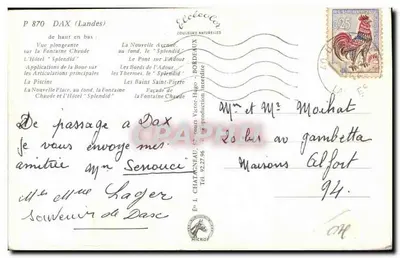 P 870 DAX (Landes)
de haut en bas :
Vue plongeante
sur la Fontaine Chaude
L'Hôtel "Splendid"
Applications de la Boue sur
les Articulations principales
La Piscine
La Nouvelle Avenue
au fond, le "Splendid"
Le Pont sur l'Adour
Les Bords de l'Adour
les Thermes, le "Splendid"
Les Bains Saint-Pierre
La Nouvelle Place, au fond, le "Splendid"
Façade de
la Fontaine Chaude et l'Hôtel "Splendid"
COULEURS NATURELLES
De passage à Dax
je vous envoye mes
amitiée Mr Senouci
Mr Mme Lager
Souvenir de Dax
L. CHATAGNEAU
BORDEAUX
Tél. 92.27.96
Reproduction interdite
Mme et Mr Moihat
20 bis av gambetta
Maisons Alfort
94.